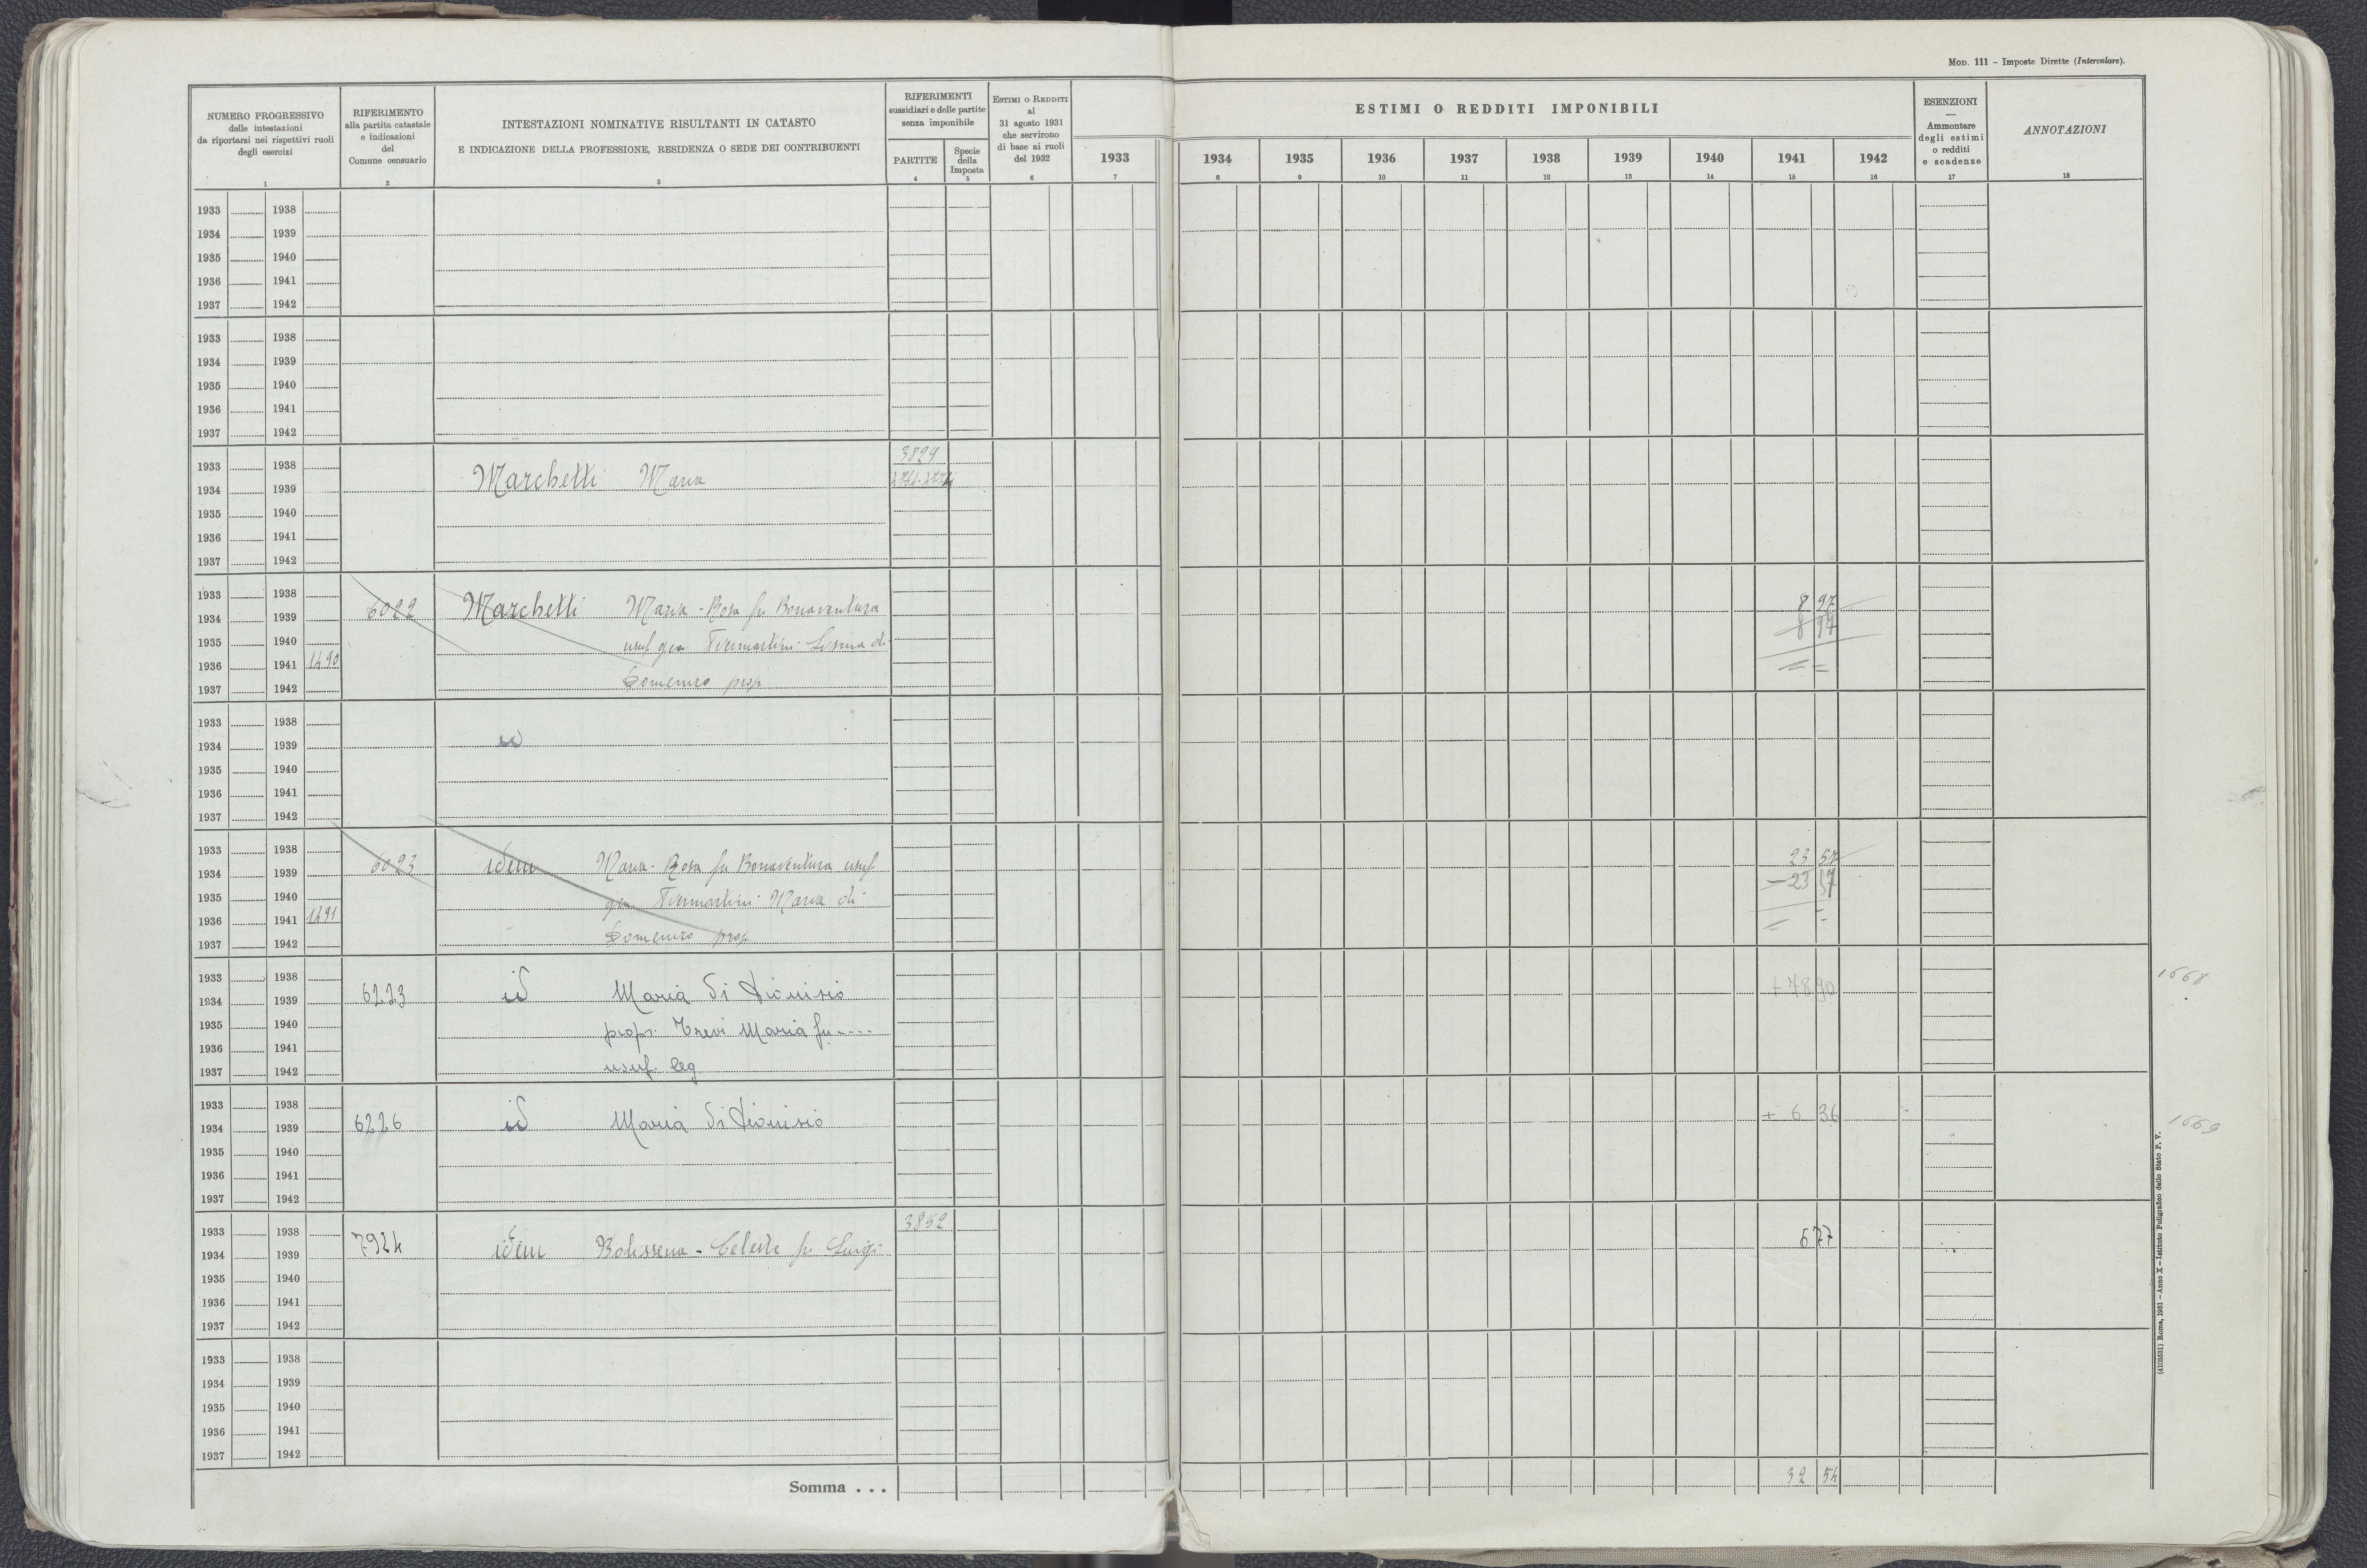 MOD. 111 – Imposte Dirette (Intercalare).
NUMERO PROGRESSIVO
delle intestazioni
da riportarsi nei rispettivi ruoli
degli esercizi
1
RIFERIMENTO
alla partita catastale
e indicazioni
del
Comune censuario
2
INTESTAZIONI NOMINATIVE RISULTANTI IN CATASTO
E INDICAZIONE DELLA PROFESSIONE, RESIDENZA O SEDE DEI CONTRIBUENTI
3
RIFERIMENTI
sussidiari e delle partite
senza imponibile
PARTITE
4
Specie
della
Imposta
5
ESTIMI O REDDITI
al
31 agosto 1931
che servirono
di base ai ruoli
del 1932
6
ESTIMI O REDDITI IMPONIBILI
1933 1934 1935 1936 1937 1938 1939 1940 1941 1942
7 8 9 10 11 12 13 14 15 16
ESENZIONI
—
Ammontare
degli estimi
o redditi
e scadenze
17
ANNOTAZIONI
18
1933 1938
1934 1939
1935 1940
1936 1941
1937 1942
1933 1938
1934 1939
1935 1940
1936 1941
1937 1942
1933 1938 3829
1934 1939 Marchetti Maria
1935 1940
1936 1941
1937 1942
1933 1938
1934 1939 6022 Marchetti Maria-Rosa fu Bonaventura 8 97
8 97
1935 1940 usuf gen
1936 1941 1490
1937 1942 Domenico prop = =
1933 1938
1934 1939 id
1935 1940
1936 1941
1937 1942
1933 1938
1934 1939 6023 idem Maria-Rosa fu Bonaventura usuf. 23 57
– 23 57
1935 1940 gen Maria di
1936 1941 1491
1937 1942 Domenico prop = =
1933 1938 1668
1934 1939 6223 id Maria di Dionisio + 78 90
1935 1940 propr. Trevi Maria fu ----
1936 1941
1937 1942 usuf. leg
1933 1938
1934 1939 6226 id Maria di Dionisio + 6 36 1669
1935 1940
1936 1941
1937 1942
1933 1938 3852
1934 1939 7924 idem Celeste fu Luigi 6 77
1935 1940
1936 1941
1937 1942
1933 1938
1934 1939
1935 1940
1936 1941
1937 1942
Somma . . . 32 54
(4103531) Roma, 1931 – Anno X – Istituto Poligrafico dello Stato P. V.